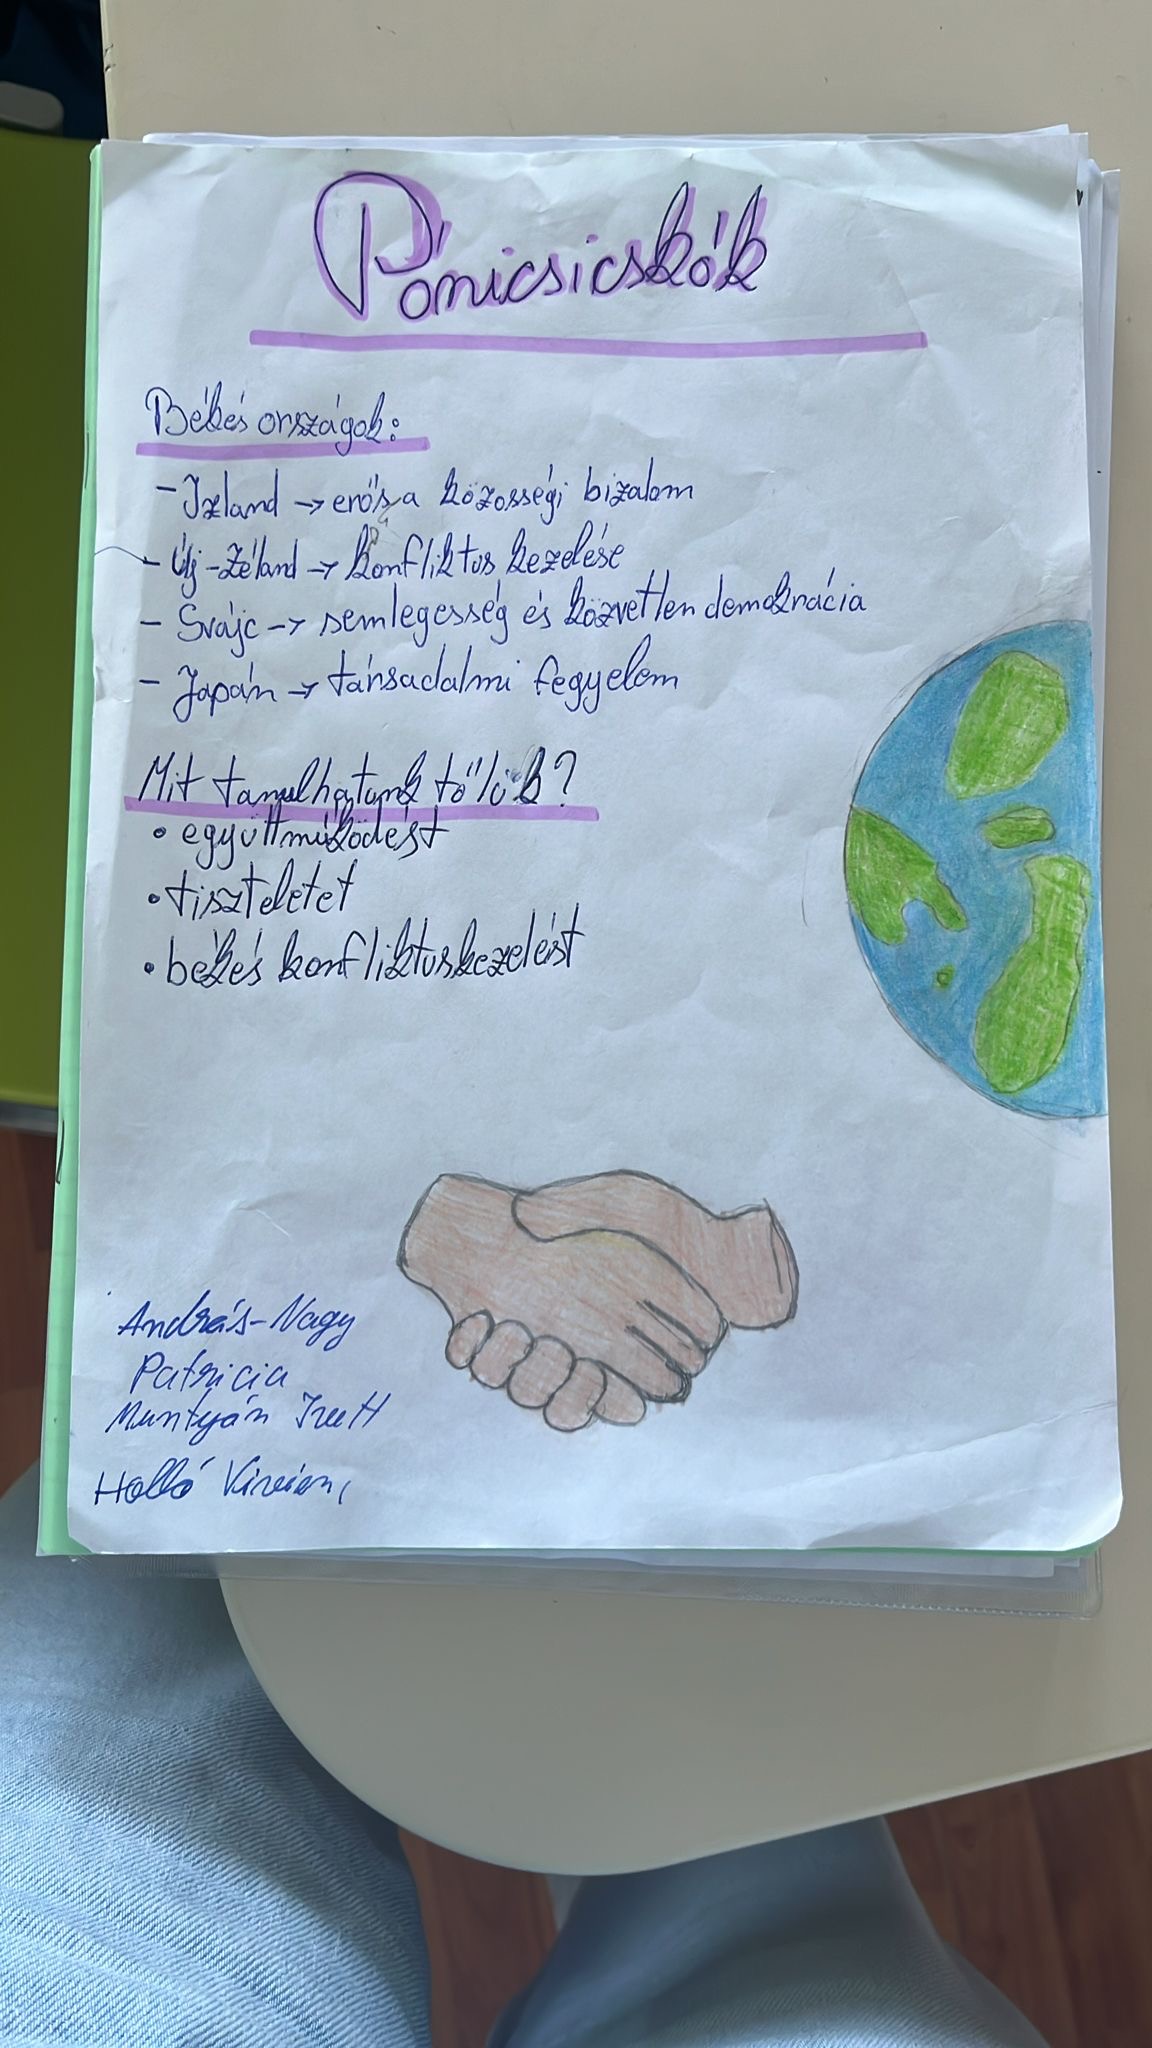 Pónicsicskók
Békés országok:
- Izland → erős a közösségi bizalom
- Új-Zéland → konfliktus kezelése
- Svájc → semlegesség és közvetlen demokrácia
- Japán → társadalmi fegyelem
Mit tanulhatunk tőlük?
• együttműködést
• tiszteletet
• békés konfliktuskezelést
András-Nagy
Patricia
Muntyán
Holló Vivien,